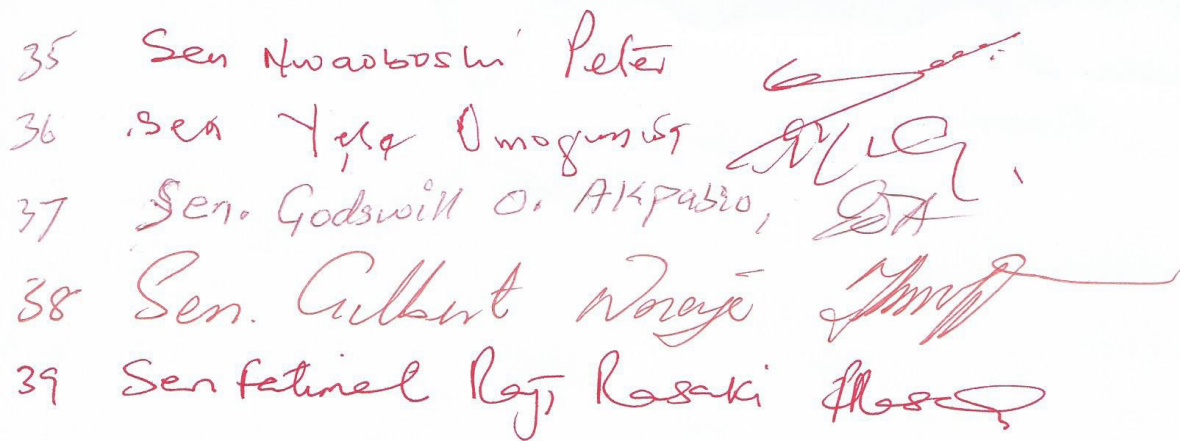 35 Sen Nwaoboshi Peter
36 Sen Yele Omogunwa
37 Sen. Godswill O. Akpabio,
38 Sen. Gilbert Nnaji
39 Sen Fatimat Raji Rasaki